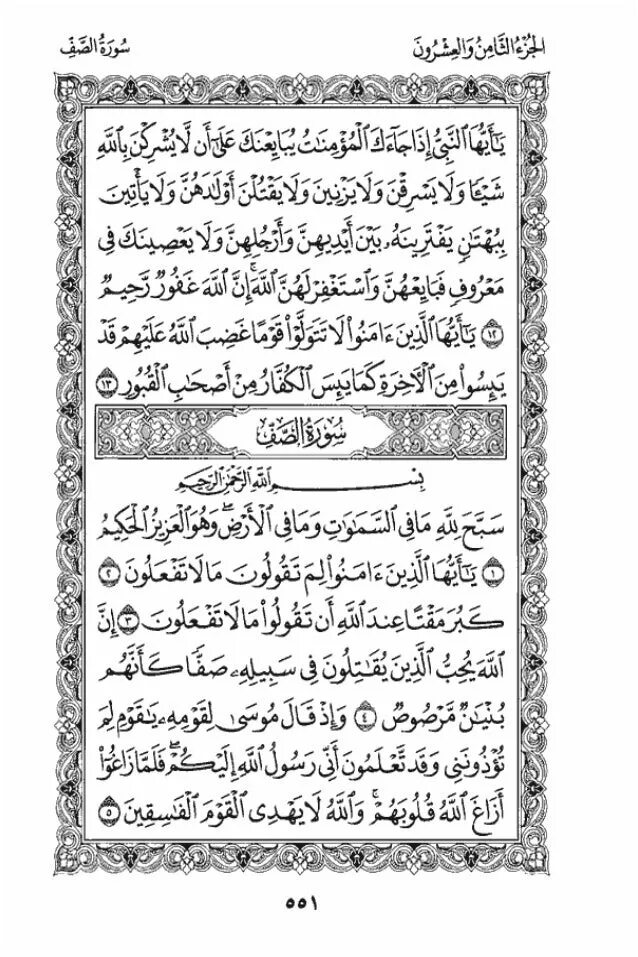 الجزء الثامن والعشرون
سورة الصف
يَـٰٓأَيُّهَا ٱلنَّبِىُّ إِذَا جَآءَكَ ٱلْمُؤْمِنَـٰتُ يُبَايِعْنَكَ عَلَىٰٓ أَن لَّا يُشْرِكْنَ بِٱللَّهِ
شَيْـًٔا وَلَا يَسْرِقْنَ وَلَا يَزْنِينَ وَلَا يَقْتُلْنَ أَوْلَـٰدَهُنَّ وَلَا يَأْتِينَ
بِبُهْتَـٰنٍ يَفْتَرِينَهُۥ بَيْنَ أَيْدِيهِنَّ وَأَرْجُلِهِنَّ وَلَا يَعْصِينَكَ فِى
مَعْرُوفٍ فَبَايِعْهُنَّ وَٱسْتَغْفِرْ لَهُنَّ ٱللَّهَ ۖ إِنَّ ٱللَّهَ غَفُورٌ رَّحِيمٌ
١٢ يَـٰٓأَيُّهَا ٱلَّذِينَ ءَامَنُوا۟ لَا تَتَوَلَّوْا۟ قَوْمًا غَضِبَ ٱللَّهُ عَلَيْهِمْ قَدْ
يَئِسُوا۟ مِنَ ٱلْـَٔاخِرَةِ كَمَا يَئِسَ ٱلْكُفَّارُ مِنْ أَصْحَـٰبِ ٱلْقُبُورِ ١٣
سُورَةُ الصَّفِّ
بِسْمِ ٱللَّهِ ٱلرَّحْمَـٰنِ ٱلرَّحِيمِ
سَبَّحَ لِلَّهِ مَا فِى ٱلسَّمَـٰوَٰتِ وَمَا فِى ٱلْأَرْضِ ۖ وَهُوَ ٱلْعَزِيزُ ٱلْحَكِيمُ
١ يَـٰٓأَيُّهَا ٱلَّذِينَ ءَامَنُوا۟ لِمَ تَقُولُونَ مَا لَا تَفْعَلُونَ ٢
كَبُرَ مَقْتًا عِندَ ٱللَّهِ أَن تَقُولُوا۟ مَا لَا تَفْعَلُونَ ٣ إِنَّ
ٱللَّهَ يُحِبُّ ٱلَّذِينَ يُقَـٰتِلُونَ فِى سَبِيلِهِۦ صَفًّا كَأَنَّهُم
بُنْيَـٰنٌ مَّرْصُوصٌ ٤ وَإِذْ قَالَ مُوسَىٰ لِقَوْمِهِۦ يَـٰقَوْمِ لِمَ
تُؤْذُونَنِى وَقَد تَّعْلَمُونَ أَنِّى رَسُولُ ٱللَّهِ إِلَيْكُمْ ۖ فَلَمَّا زَاغُوٓا۟
أَزَاغَ ٱللَّهُ قُلُوبَهُمْ ۚ وَٱللَّهُ لَا يَهْدِى ٱلْقَوْمَ ٱلْفَـٰسِقِينَ ٥
٥٥١